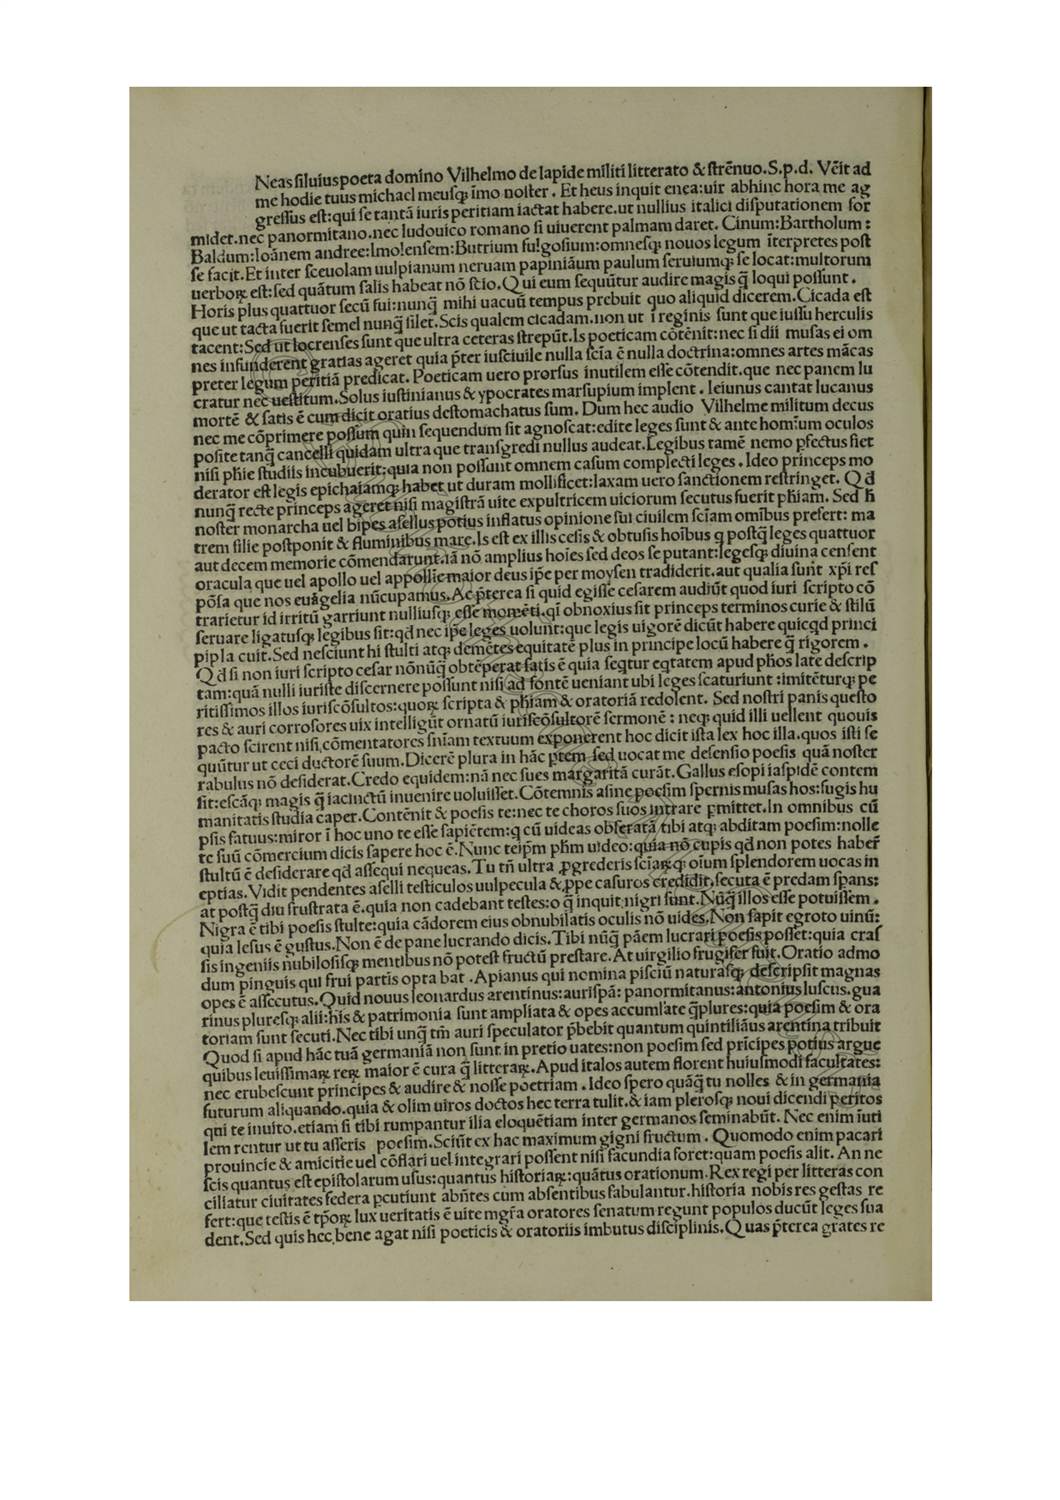 Neas siluius poeta domino Vilhelmo de lapide militi litterato & strēnuo. S.p.d. Vēit ad
me hodie tuus michael meusq; īmo noster. Et heus inquit enea: uir abhinc hora me ag
gressus est: qui se tantā iuris peritiam iactat habere. ut nullius italici disputationem for
midet. nec panormitano. nec ludouico romano si uiuerent palmam daret. Cinum: Bartholum:
Baldum: ioānem andree: Imolensem: Butrium fulgosium: omnesq; nouos legum īterpretes post
se facit. Et inter sceuolam uulpianum neruam papiniāum paulum seruiumq; se locat: multorum
uerboꝝ est: sed quātum salis habeat nō scio. Qui eum sequūtur audire magis q̄ loqui possunt.
Horis plus quattuor secū fui: nunq̄ mihi uacuū tempus prebuit quo aliquid dicerem. Cicada est
que ut tacta fuerit semel nunq̄ silet. Scis qualem cicadam. non ut ī reginis sunt que iussu herculis
tacent: Sed ut locrenses sunt que ultra ceteras strepūt. Is poeticam cōtēnit: nec si dii musas ei om
nes infunderent gratias ageret quia p̄ter ius ciuile nulla scīa ē nulla doctrina: omnes artes mācas
preter legum peritiā predicat. Poeticam uero prorsus inutilem esse cōtendit. que nec panem lu
cratur nec uestitum. Solus iustinianus & ypocrates marsupium implent. Ieiunus cantat lucanus
mortē & satis ē cum dicit oratius destomachatus sum. Dum hec audio Vilhelme militum decus
nec me cōprimere possum quin sequendum sit agnoscat: edite leges sunt & ante hominum oculos
posite tanq̄ cancelli quidam ultra que transgredi nullus audeat. Legibus tamē nemo ꝑfectus fiet
nisi phīe studiis incubuerit: quia non possunt omnem casum complecti leges. Ideo princeps mo
derator est legis epichaiamq; habet ut duram mollificet: laxam uero sanctionem restringet. Qd̄
nunq̄ recte princeps ageret nisi magistrā uite expultricem uiciorum secutus fuerit phīam. Sed h̄
noster monarcha uel bipes asellus potius inflatus opinione sui ciuilem scīam omībus prefert: ma
trem filie postponit & fluminibus mare. Is est ex illis cesis & obtusis hoībus q postq̄ leges quattuor
aut decem memorie cōmendarunt. iā nō amplius hoīes sed deos se putant: legesq; diuina censent
oracula que uel apollo uel appolline maior deus ip̄e per moysen tradiderit. aut qualia sunt xp̄i res
pōsa que nos euāgelia nūcupamus. Ac p̄terea si quid egisse cesarem audiūt quod iuri scripto cō
trarietur id irritū garriunt nulliusq; esse momēti. qī obnoxius sit princeps terminos curie & stilū
seruare ligatusq; legibus sit: qd̄ nec ip̄e leges uolunt: que legis uigorē dicūt habere quicqd princi
pi pla cuit. Sed nesciunt hi stulti atq; demētes equitatē plus in principe locū habere q̄ rigorem.
Qd̄ si non iuri scripto cesar nōnūq̄ obtēperat satis ē quia seqtur eqtatem apud phōs late descrip
tam: quā nulli iuriste discernere possunt nisi ad fontē ueniant ubi leges scaturiunt: imitēturq; pe
ritissimos illos iuriscōsultos: quoꝝ scripta & phīam & oratoriā redolent. Sed nostri panis questo
res & auri corrosores uix intelligūt ornatū iuriscōsultorē sermonē: neq; quid illi uellent quouis
pacto scirent nisi cōmentatores snīam textuum exponerent hoc dicit ista lex hoc illa. quos isti se
quūtur ut ceci ductorē suum. Dicerē plura in hāc ptem. sed uocat me defensio poesis quā noster
rabulus nō desiderat. Credo equidem: nā nec sues margaritā curāt. Gallus esopi iaspidē contem
sit: escāq; magis q̄ iacinctū inuenire uoluisset. Cōtemnis asine poesim spernis musas hos: fugis hu
manitatis studia caper. Contēnit & poesis te: nec te choros suos intrare ꝑmittet. In omnibus cū
psis fatuus: miror ī hoc uno te esse sapiētem: q cū uideas obseratā tibi atq; abditam poesim: nolle
te suū cōmercium dicis sapere hoc ē. Nunc teipm phm uideo: quia nō cupis qd non potes haber̄
stultū ē desiderare qd assequi nequeas. Tu tn̄ ultra ꝓgrederis scīaꝝq; oīum splendorem uocas in
eptias. Vidit pendentes aselli testiculos uulpecula & ꝓpe casuros credidit. secuta ē predam sp̄ans:
at postq̄ diu frustrata ē. quia non cadebant testes: o q̄ inquit nigri sunt. Nūq̄ illos esse potuissem.
Nigra ē tibi poesis stulte: quia cādorem eius obnubilatis oculis nō uides. Non sapit egroto uinū:
quia lesus ē gustus. Non ē de pane lucrando dicis. Tibi nūq̄ pāem lucrari poesis posset: quia cras
sis ingeniis nubilosisq; mentibus nō potest fructū prestare. At uirgilio frugifer fuit. Oratio admo
dum pinguis qui frui partis opta bat. Apianus qui nomina pisciū naturasq; descripsit magnas
opes ē assecutus. Quid nouus leonardus arentinus: aurispā: panormitanus: antonius luscus. gua
rinus pluresq; alii: his & patrimonia sunt ampliata & opes accumlate q̄plures: quia poesim & ora
toriam sunt secuti. Nec tibi unq̄ tm̄ auri speculator p̄bebit quantum quintiliāus arentina tribuit
Quod si apud hāc tuā germaniā non sunt in pretio uates: non poesim sed prīcipes potius argue
quibus leuissimaꝝ reꝝ maior ē cura q̄ litteraꝝ. Apud italos autem florent huiusmodi facultates:
nec erubescunt principes & audire & nosse poetriam. Ideo spero quāq̄ tu nolles & in germania
futurum aliquando. quia & olim uiros doctos hec terra tulit. & iam plerosq; noui dicendi peritos
qui te inuito. etiam si tibi rumpantur ilia eloquētiam inter germanos seminabūt. Nec enim īuti
lem rentur ut tu asseris poesim. Sciūt ex hac maximum gigni fructum. Quomodo enim pacari
prouincie & amicitie uel cōflari uel integrari possent nisi facundia foret: quam poesis alit. An ne
scis quantus est epistolarum usus: quantus historiaꝝ: quātus orationum. Rex regi per litteras con
ciliatur ciuitates federa ꝑcutiunt abn̄tes cum absentibus fabulantur. historia nobis res gestas re
fert: que testis ē tp̄oꝝ lux ueritatis ē uite mgr̄a oratores senatum regunt populos ducūt leges sua
dent. Sed quis hec bene agat nisi poeticis & oratoriis imbutus disciplinis. Quas p̄terea grates re